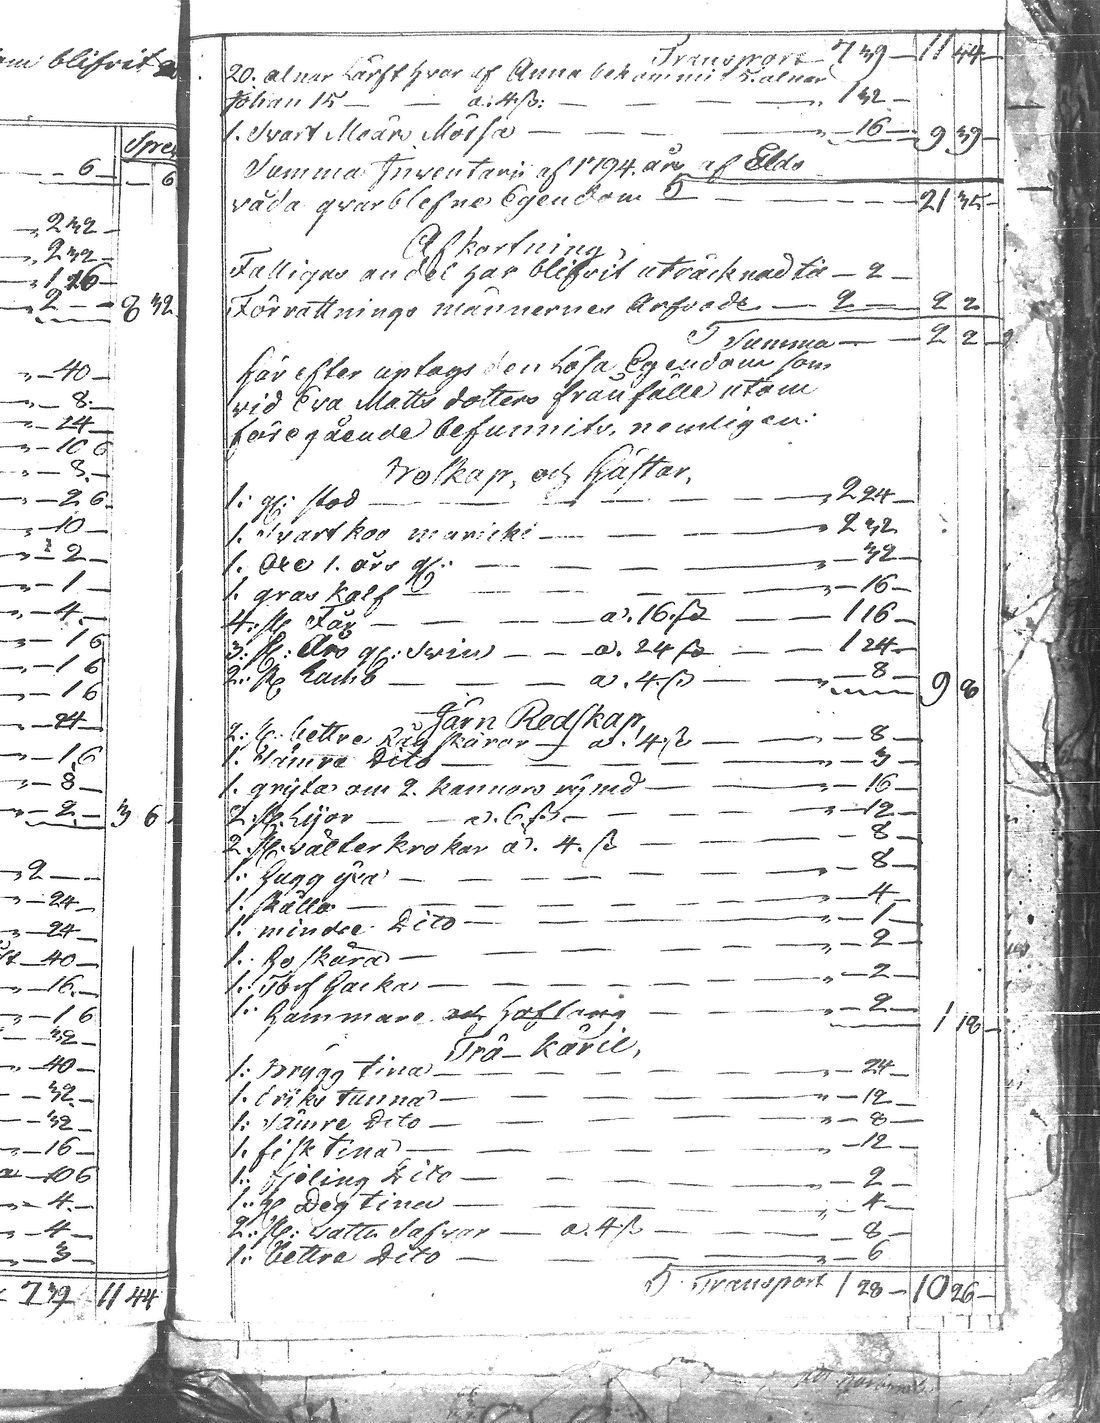 om blifvit
Spec
6 6
2 32
2 32
1 16
2 8 32
40
8
24
10 6
8
2 6
10
2
1
4
1 6
1 6
1 6
24
1 6
8
2 3 6
2
24
24
40
16
1 6
32
40
32
32
16
10 6
4
4
3
7 39 11 44
Transport 7 39 11 44
20. alnar Lärft hvar af Anna bekommit 5. alnar
Johan 15 a: 4 ß: 1 32
1. Svart Mössa 16 9 39
Summa Inventarii af 1794. års af Elds
våda qvarblefne Egendom 21 35
Afkortning
Fattigas andel har blifvit uträcknad till 2
Förrättnings männernes Arfvode 2 2 2
Summa 2 2
Här efter uptogs den Lösa Egendom som
vid Eva Matts dotters frånfälle utom
föregående befunnits, nemligen:
Boskap, och Hästar,
1: gl: stod 2 24
1. Svart koo 2 32
1. 1. års gl: 32
1. gras kalf 16
4. st. Får a: 16. ß 1 16
3: st: Års gl: Swin a. 24 ß 1 24
2: st. Lamb a. 4. ß 8 9 8
Järn Redskap,
2. st: bettre Råg skäror a. 4 ß 8
1. Sämre Dito 3
1. gryta om 2. kannors rymd 16
2. st. Lijor a. 6. ß 12
2. st. välterkrokar a. 4. ß 8
1: Hugg 8
1. skälla 4
1: mindre Dito 1
1. skära 2
1: Torf Hacka 2
1: Hammare 2 1 18
Trä-käril,
1: Brygg tina 24
1. Driks tunna 12
1: Sämre Dito 8
1. fisk tina 12
1: Dito 2
1: st Deg tina 4
2: st: vattu Safvar a. 4 ß 8
1: bettre Dito 6
Transport 1 28 10 26